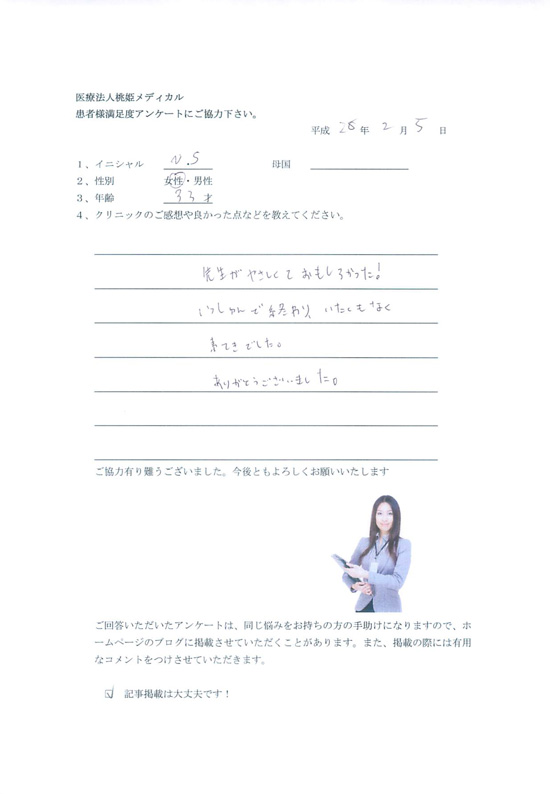 医療法人桃姫メディカル
患者様満足度アンケートにご協力下さい。
平成 28 年 2 月 5 日
1、イニシャル N.S 母国
2、性別 女性・男性
3、年齢 33才
4、クリニックのご感想や良かった点などを教えてください。
先生がやさしくておもしろかった!
いっしゅんで終わり、いたくもなく
素てきでした。
ありがとうございました。
ご協力有り難うございました。今後ともよろしくお願いいたします
ご回答いただいたアンケートは、同じ悩みをお持ちの方の手助けになりますので、ホ
ームページのブログに掲載させていただくことがあります。また、掲載の際には有用
なコメントをつけさせていただきます。
☑ 記事掲載は大丈夫です!